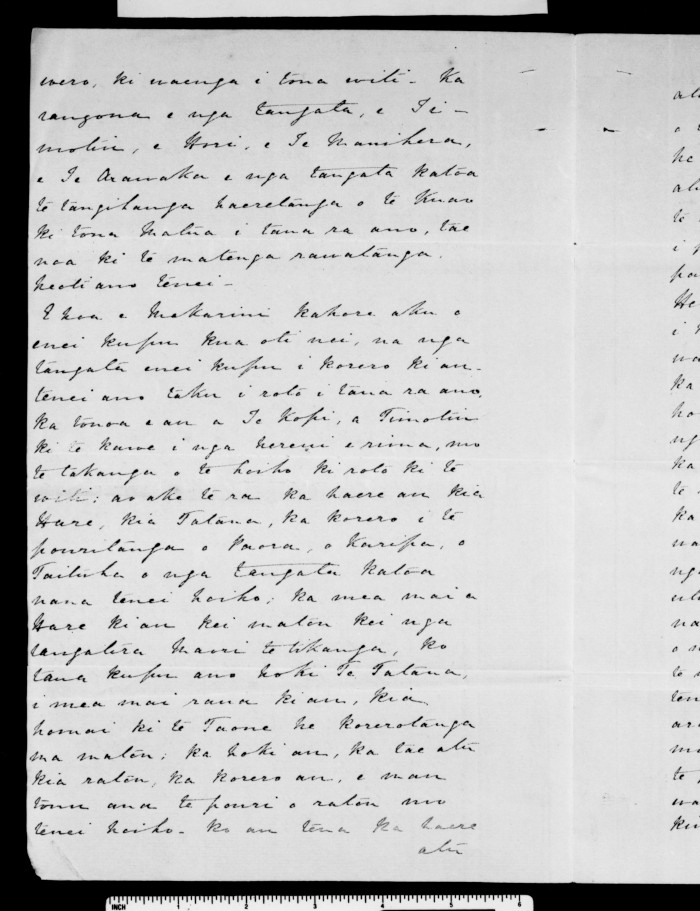 wero, ki waenga i tona witi - Ka
rangona e nga tangata, e Ti-
motiu, e Hori, e Te Manihera,
e Te Arawaka e nga tangata katoa
te tangihanga haeretanga o te Kuao
ki tona Matua i taua ra ano, tae
noa ki te matenga rawatanga.
heoti ano tenei -
E hoa e Makarini kahore aku o
enei kupu kua oti nei, na nga
tangata enei kupu i korero ki au.
tenei ano taku i roto i taua ra ano,
ka tonoa e au a Te Kopi, a Timotiu
ki te kawe i nga hereni e rima, mo
te takanga o te hoiho ki roto ki te
witi; ao ake te ra ka haere au kia
Hare, kia Tatana, ka korero i te
pouritanga o Paora, o Karipa, o
Taituha o nga tangata katoa
nana tenei hoiho; ka mea mai a
Hare ki au kei matou kei nga
rangatira Maori te tikanga, ko
tana kupu ano hoki Te Tatana,
i mea mai raua ki au, kia
homai ki te Taone he korerotanga
ma matou; ka hoki au, ka tae atu
kia ratou, ka korero au, e mau
tonu ana te pouri o ratou mo
tenei hoiho - ko au tena ka haere
atu